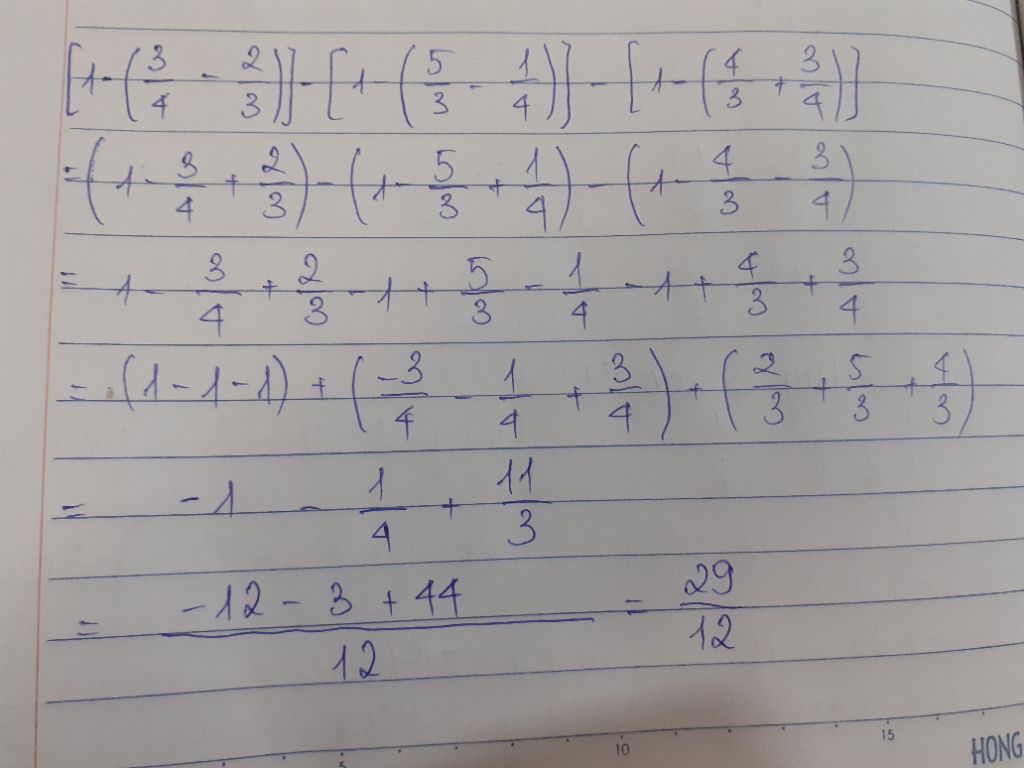 [1-(3/4 - 2/3)] - [1-(5/3 - 1/4)] - [1-(4/3 + 3/4)]
= (1 - 3/4 + 2/3) - (1 - 5/3 + 1/4) - (1 - 4/3 - 3/4)
= 1 - 3/4 + 2/3 - 1 + 5/3 - 1/4 - 1 + 4/3 + 3/4
= (1 - 1 - 1) + (-3/4 - 1/4 + 3/4) + (2/3 + 5/3 + 4/3)
= -1 - 1/4 + 11/3
= (-12 - 3 + 44)/12 = 29/12
5 10 15 HONG